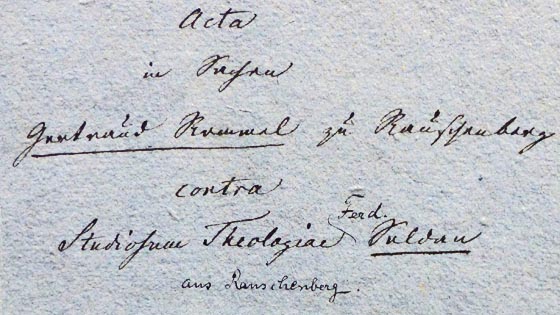 Acta
in Sachen
Gertraud Rommel zu Rauschenberg
contra
Studiosum Theologiae Ferd. Soldan
aus Rauschenberg.